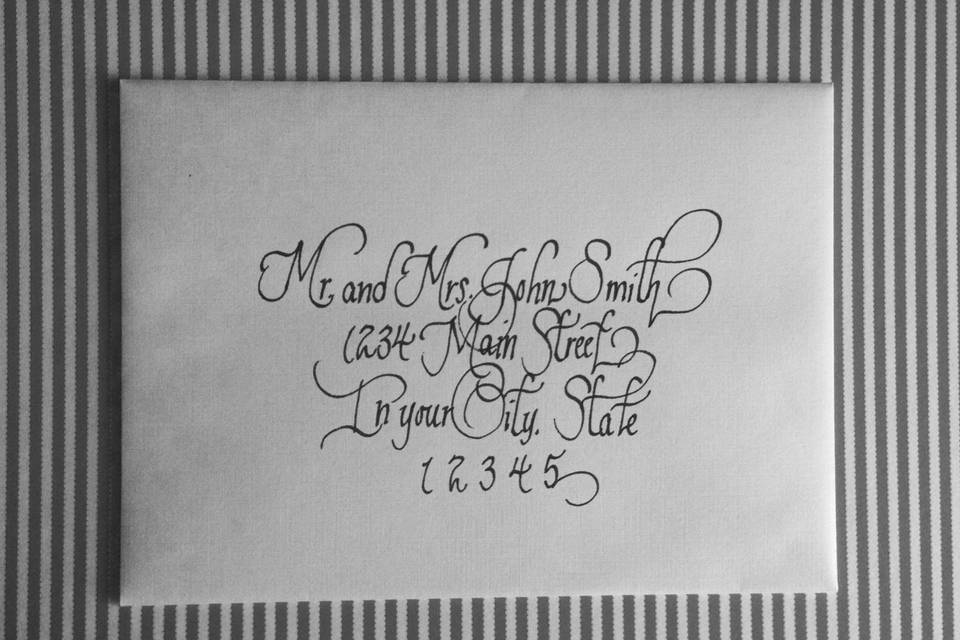 Mr. and Mrs. John Smith
1234 Main Street
In your City, State
12345